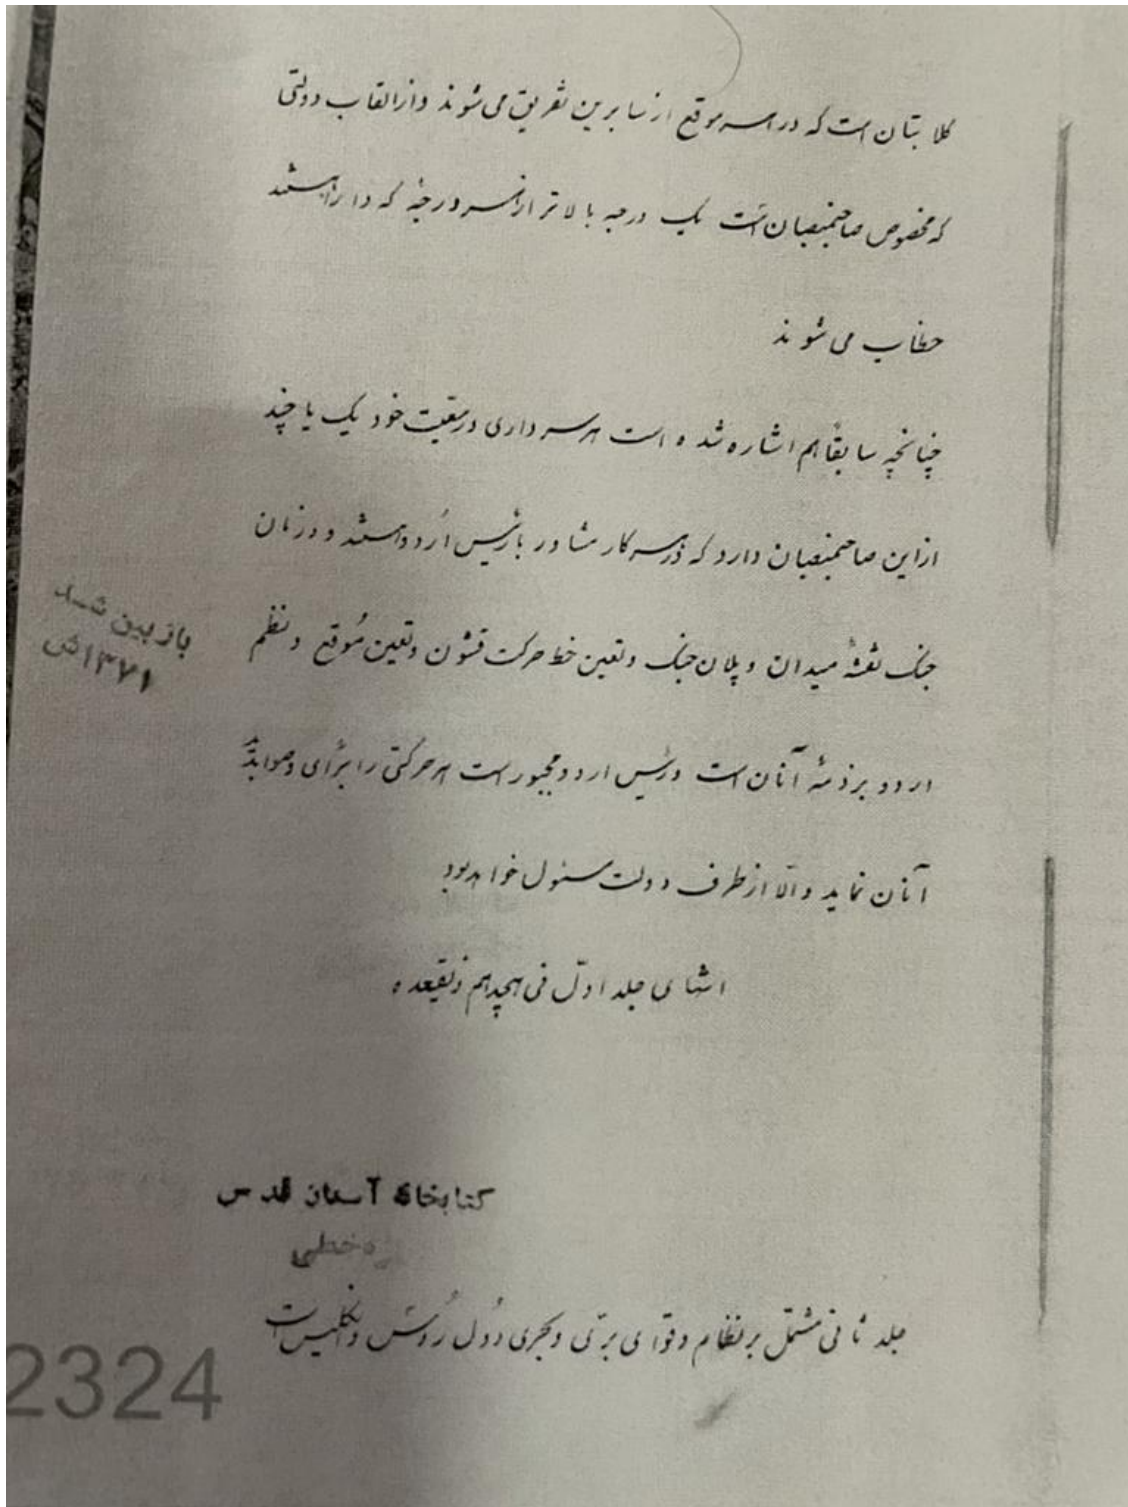 گلابتان است که در سر موقع از سایرین تفریق می‌شوند و از القاب دولتی
که مخصوص صاحبمنصبان است یک درجه بالاتر از درجه که دارا هستند
خطاب می‌شوند
چنانچه سابقاً هم اشاره شده است هر سرداری در معیت خود یک یا چند
از این صاحبمنصبان دارد که در سر کار مشاور با رئیس اُردو هستند و در زمان
جنگ نقشهٔ میدان و پلان جنگ و تعین خط حرکت قشون و تعین مُوقع و نظم
اردو بر ذمهٔ آنان است و رئیس اردو مجبور است هر حرکتی را برأی و صوابدید
آنان نماید و الّا از طرف دولت مسئول خواهد بود
انتهای جلد اوّل فی هیجدهم ذیقعده
بازبین شد
۱۳۷۱ش
کتابخانه آستان قدس
خطی
جلد ثانی مشتمل بر نظام و قوای برّی و بحری دُول رُوس و انگلیس است
2324